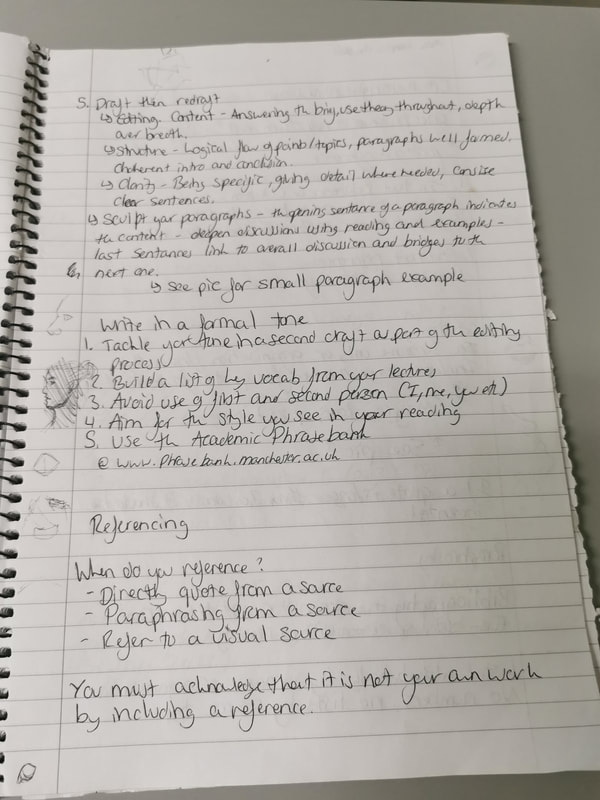 5. Draft then redraft
↳ Editing. Content - Answering the brief, use theory throughout, depth
over breath.
↳ Structure - Logical flow of points/topics, paragraphs well formed.
Choherent intro and conclusion.
↳ Clarity - Being specific, giving detail where needed, consise
clear sentences.
↳ Sculpt your paragraphs - the opening sentance of a paragraph indicates
the content - deepen discussions using reading and examples -
last sentannes link to overall discussion and bridges to the
6. next one.
↳ see pic for small paragraph example
Write in a formal tone
1. Tackle your tone in a second draft as part of the editing
process
2. Build a list of key vocab from your lectures
3. Avoid use of first and second person (I, me, you etc)
4. Aim for the style you see in your reading
5. Use the Academic Phrasebank
@ www.phrasebank.manchester.ac.uk
Referencing
When do you reference?
- Directly quote from a source
- Paraphrasing from a source
- Refer to a visual source
You must acknowledge that it is not your own work
by including a reference.